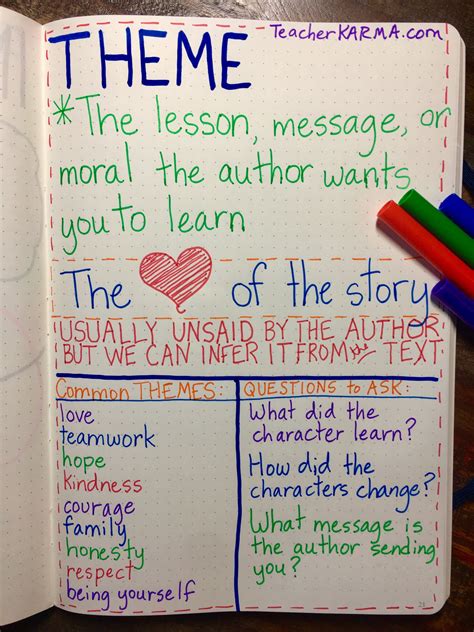 TeacherKARMA.com
THEME
*The lesson, message, or
moral the author wants
you to learn
The of the story
USUALLY UNSAID BY THE AUTHOR,
BUT WE CAN INFER IT FROM TEXT
Common THEMES:
love
teamwork
hope
kindness
courage
family
honesty
respect
being yourself
QUESTIONS to ASK:
What did the
character learn?
How did the
characters change?
What message is
the author sending
you?